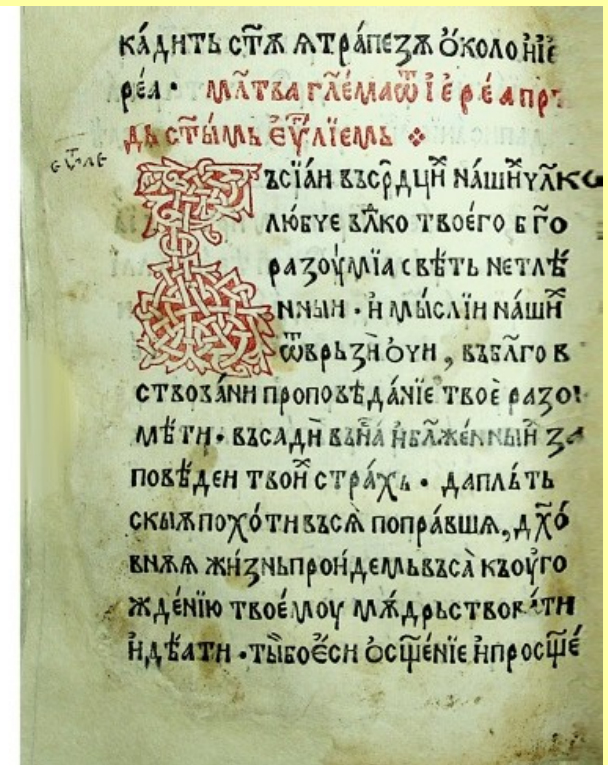 ка́дить ст҃ѫ ѧ тра́пезѫ ѻ́коло ѝ іе
ре́а · мл҃тва гл҃е́маѿ і е́ ре́а прѣ
дь ст҃ы́мь ѐѵл҃їемь
еѵ҃ле
Въсїа́и въ срⷣцїи на́ши чл҃ко
лю́бче вл҃ко твоего́ б го
разоу́мїа свѣ́ть нетлѣ́
нныи · и҆ мы́слїи на́ши
ѿврьзѝ ѻчи, въ бл҃гов
ствова́ни проповѣ́да́нїе твоѐ разо
мѣ́ти · въсадѝ въ на́ и҆ бл҃же́нныи за
повѣ́деи твои́ стра́хь · да пль́ть
скыѫ по́хоти въсѧ̀ попра́вшѧ, дх҃о́
внѫѫ жи́знь пройдемь въса̀ къ оу҆го
жде́нїю твоемоу мѫ́дрьствовати
и҆ дѣ́ати · ты́ бо є҆си ѻ҆сщ҃е́нїе и҆ просщ҃е́